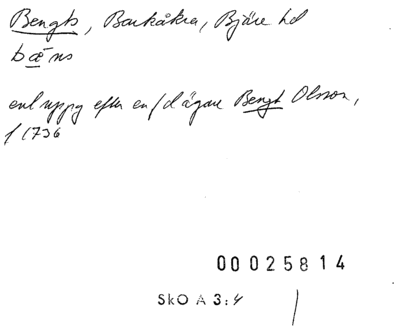 Bengts, Barkåkra, Bjäre hd
bæ̅ns
enl uppg efter en f d ägare Bengt Olsson,
f 1736
00025814
SkO A 3:4